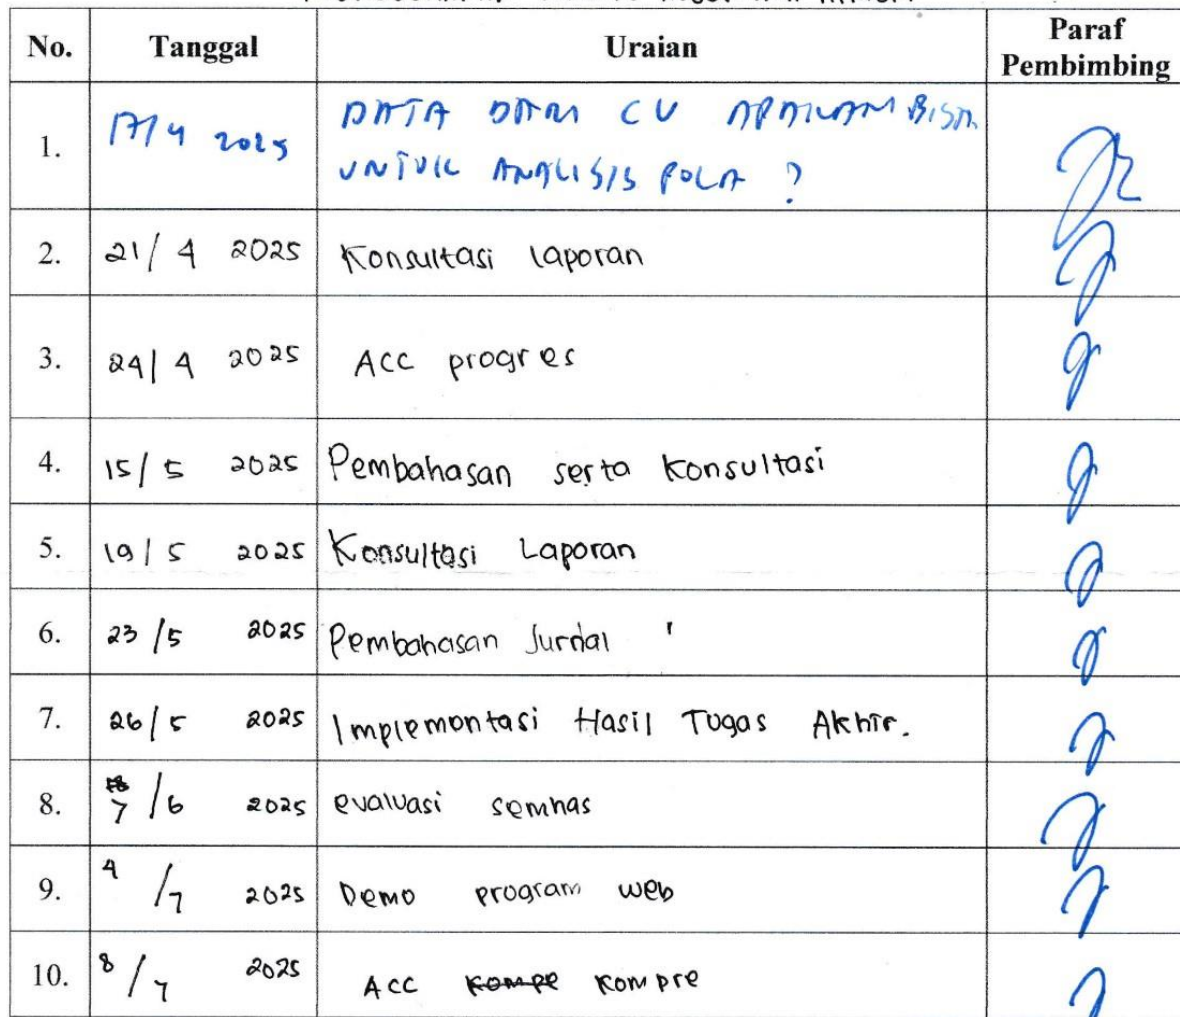 No. Tanggal Uraian Paraf Pembimbing
1. 17/4 2025 DATA DARI CV APAKAH BISA
UNTUK ANALISIS POLA ?
2. 21/4 2025 Konsultasi laporan
3. 24/4 2025 ACC progres
4. 15/5 2025 Pembahasan serta Konsultasi
5. 19/5 2025 Konsultasi Laporan
6. 23/5 2025 Pembahasan Jurnal
7. 26/5 2025 Implementasi Hasil Tugas Akhir.
8. 7/6 2025 evaluasi semhas
9. 4/7 2025 Demo program web
10. 8/7 2025 ACC kompe kompre